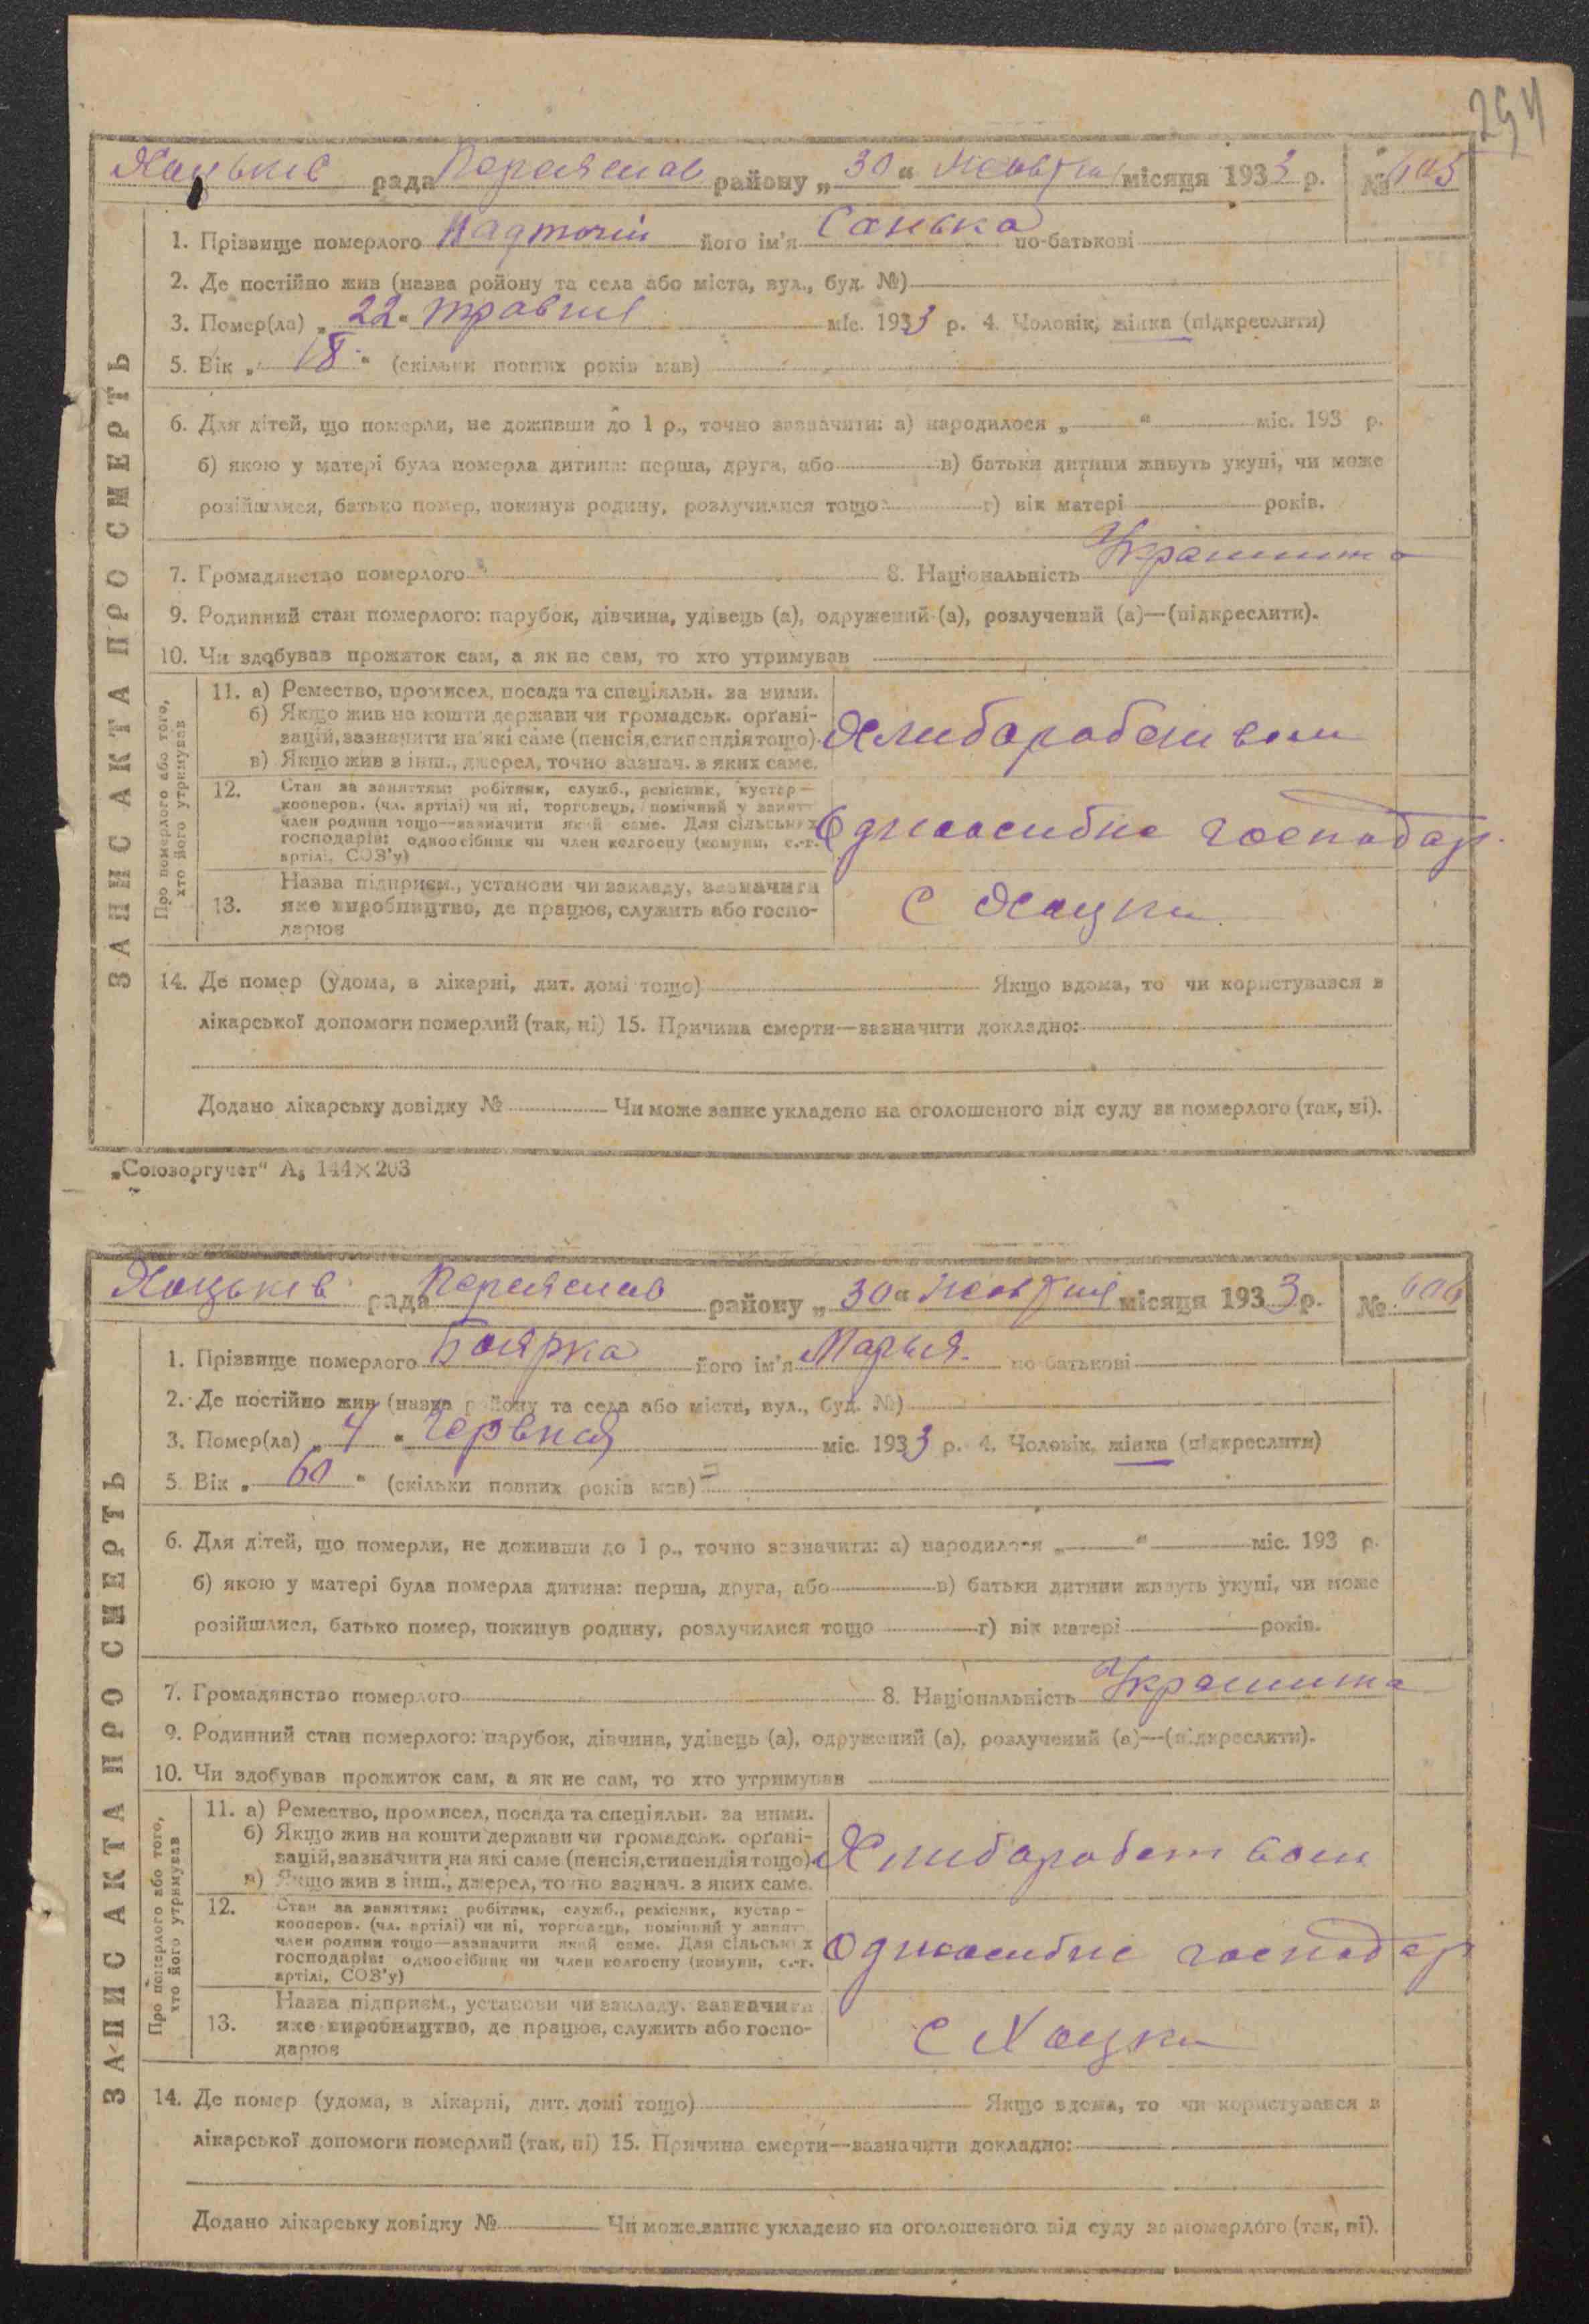 294
Хоцьків рада Переяслав району „30“ Жовтня місяця 1933 р. № 605
1. Прізвище померлого Надточій його ім'я Санька по-батькові
2. Де постійно жив (назва ройону та села або міста, вул., буд. №)
3. Помер(ла) „22“ травня міс. 1933 р. 4. Чоловік, жінка (підкреслити)
5. Вік „18“ (скільки повних років мав)
6. Для дітей, що померли, не доживши до 1 р., точно зазначити: а) народилося „ “ міс. 193 р.
б) якою у матері була померла дитина: перша, друга, або в) батьки дитини живуть укупі, чи може
розійшлися, батько помер, покинув родину, розлучилися тощо г) вік матері років.
7. Громадянство померлого 8. Національність Украинка
9. Родинний стан померлого: парубок, дівчина, удівець (а), одружений (а), розлучений (а)—(підкреслити).
10. Чи здобував прожиток сам, а як не сам, то хто утримував
ЗАПИС АКТА ПРО СМЕРТЬ
Про померлого або того, хто його утримував
11. а) Ремество, промисел, посада та спеціяльн. за ними.
б) Якщо жив на кошти держави чи громадськ. орґані-
зацій, зазначити на які саме (пенсія, стипендія тощо).
в) Якщо жив з інш., джерел, точно зазнач. з яких саме.
Хлиборобством
12. Стан за заняттям: робітник, служб., ремісник, кустар—
кооперов. (чл. артілі) чи ні, торговець, помічний у занятт
член родини тощо—зазначити який саме. Для сільських
господарів: одноосібник чи член колгоспу (комуни, с.-г.
артілі, СОЗ'у)
Одноосибне господар.
13. Назва підприєм., установи чи закладу, зазначити
яке виробництво, де працює, служить або госпо-
дарює
с Хоцки
14. Де помер (удома, в лікарні, дит. домі тощо) Якщо вдома, то чи користувався з
лікарської допомоги померлий (так, ні) 15. Причина смерти—зазначити докладно:
Додано лікарську довідку № Чи може запис укладено на оголошеного від суду за померлого (так, ні).
„Союзоргучет“ А₅ 144×203
Хоцьків рада Переяслав району „30“ Жовтня місяця 1933 р. № 606
1. Прізвище померлого Боярка його ім'я Марья по-батькові
2. Де постійно жив (назва району та села або міста, вул., буд. №)
3. Помер(ла) „4“ Червня міс. 1933 р. 4. Чоловік, жінка (підкреслити)
5. Вік „60“ (скільки повних років мав)
6. Для дітей, що померли, не доживши до 1 р., точно зазначити: а) народилося „ “ міс. 193 р.
б) якою у матері була померла дитина: перша, друга, або в) батьки дитини живуть укупі, чи може
розійшлися, батько помер, покинув родину, розлучилися тощо г) вік матері років.
7. Громадянство померлого 8. Національність Украинка
9. Родинний стан померлого: парубок, дівчина, удівець (а), одружений (а), розлучений (а)—(підкреслити).
10. Чи здобував прожиток сам, а як не сам, то хто утримував
ЗАПИС АКТА ПРО СМЕРТЬ
Про померлого або того, хто його утримував
11. а) Ремество, промисел, посада та спеціяльн. за ними.
б) Якщо жив на кошти держави чи громадськ. орґані-
зацій, зазначити на які саме (пенсія, стипендія тощо).
в) Якщо жив з інш., джерел, точно зазнач. з яких саме.
Хлиборобством
12. Стан за заняттям: робітник, служб., ремісник, кустар—
кооперов. (чл. артілі) чи ні, торговець, помічний у занятт
член родини тощо—зазначити який саме. Для сільських
господарів: одноосібник чи член колгоспу (комуни, с.-г.
артілі, СОЗ'у)
Одноосибне господар
13. Назва підприєм., установи чи закладу, зазначити
яке виробництво, де працює, служить або госпо-
дарює
с Хоцки
14. Де помер (удома, в лікарні, дит. домі тощо) Якщо вдома, то чи користувався з
лікарської допомоги померлий (так, ні) 15. Причина смерти—зазначити докладно:
Додано лікарську довідку № Чи може запис укладено на оголошеного від суду за померлого (так, ні).